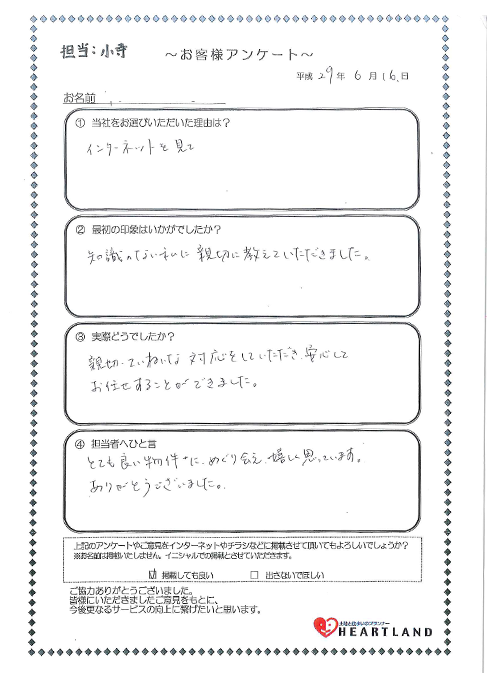 担当:小寺
～お客様アンケート～
平成 29年 6月16日
お名前
① 当社をお選びいただいた理由は？
インターネットを見て
② 最初の印象はいかがでしたか？
知識のない私に親切に教えていただきました。
③ 実際どうでしたか？
親切、ていねいな対応をしていただき、安心して
お任せすることができました。
④ 担当者へひと言
とても良い物件に、めぐり会え、嬉しく思っています。
ありがとうございました。
上記のアンケートやご意見をインターネットやチラシなどに掲載させて頂いてもよろしいでしょうか？
※お名前は掲載いたしません。イニシャルでの掲載とさせていただきます。
☑ 掲載しても良い □ 出さないでほしい
ご協力ありがとうございました。
皆様にいただきましたご意見をもとに、
今後更なるサービスの向上に繋げたいと思います。
土地と住まいのプランナー
HEARTLAND